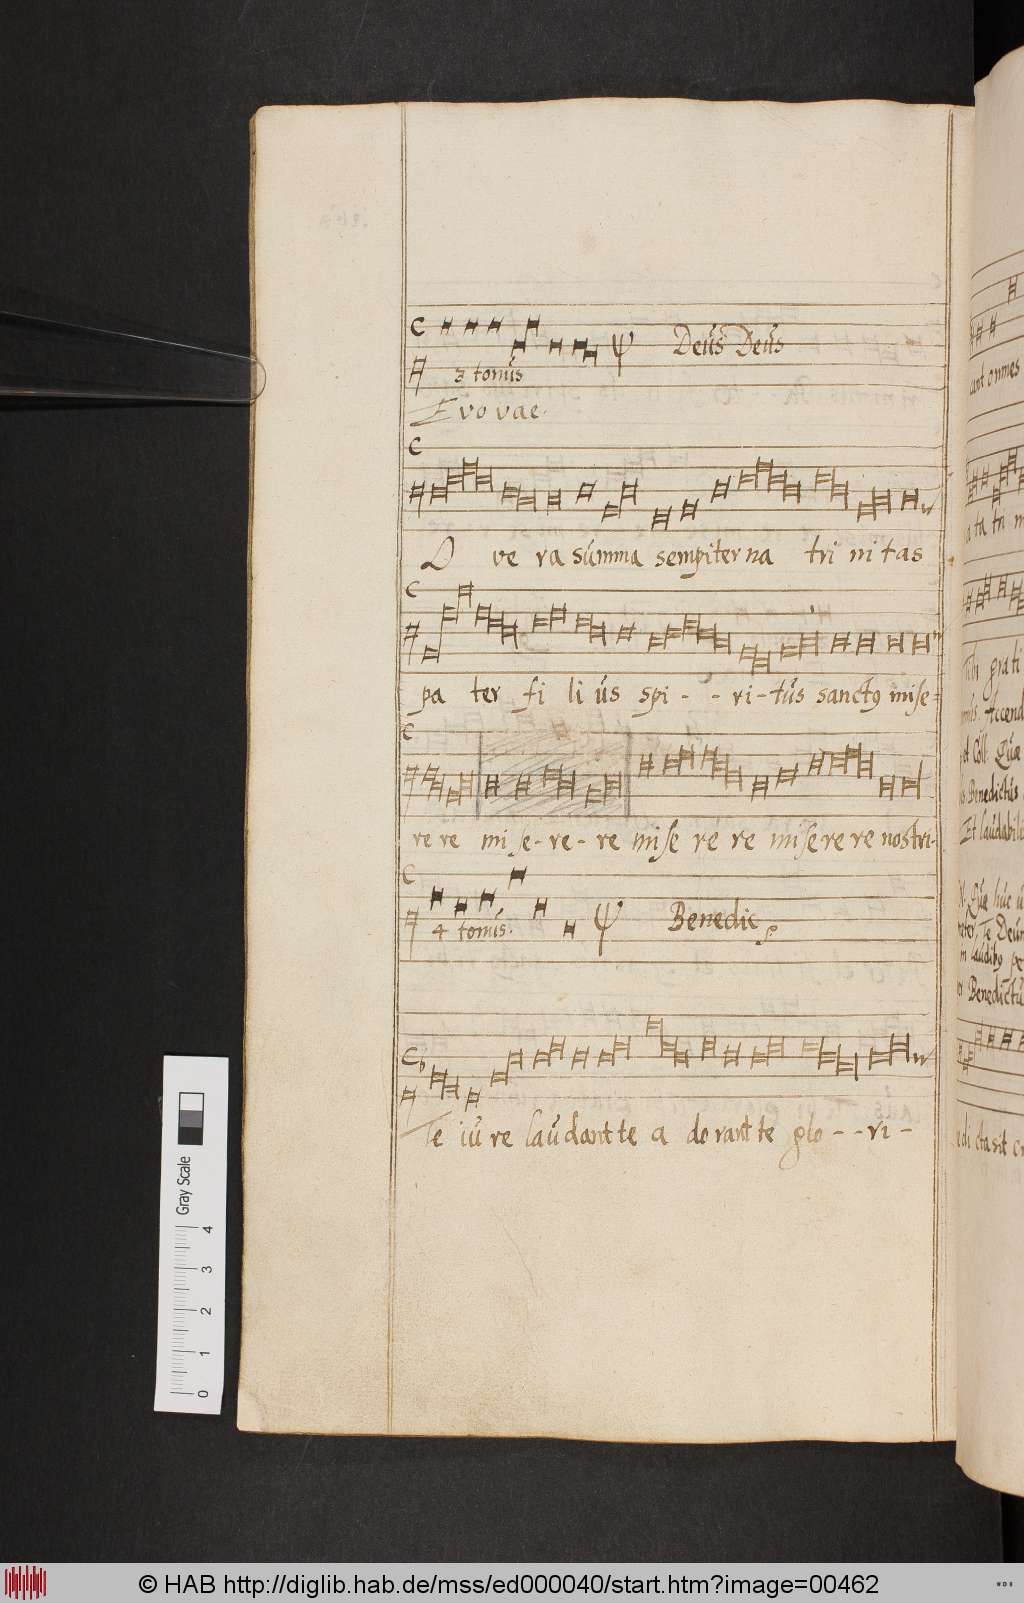 Deus Deus
3 tonus
Evo vae.
O ve ra summa sempiter na tri ni tas
pa ter fi li us spi - - ri-tus sanctꝯ mise-
re re mi se-re-re mise re re misere re nostri.
4 tonus. Benedic
Te iu re laudant te a do rant te glo - - ri -
cant omnes
ta tri
Tibi grati
Accend
et Coll Quæ
Benedictus
Et laudabil
Quæ huc
Te Deum
Benedictu
dicta sit
Gray Scale
0 1 2 3 4
© HAB http://diglib.hab.de/mss/ed000040/start.htm?image=00462